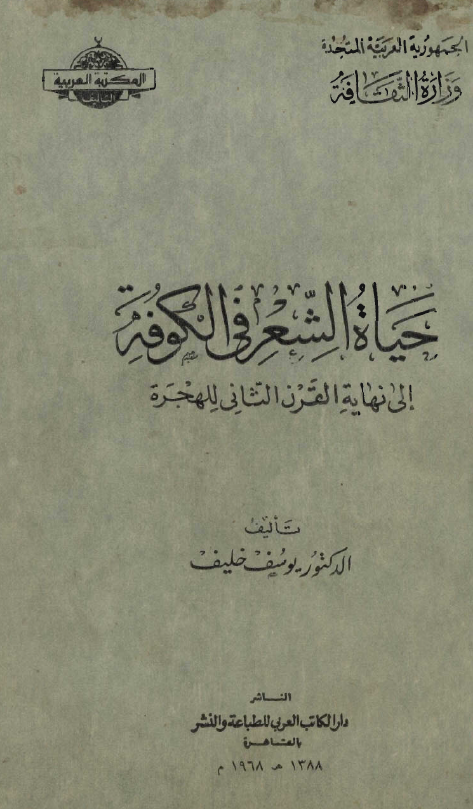 الجمهورية العربية المتحدة
وزارة الثقافة
المكتبة العربية
حَيَاةُ الشِّعْرِ فِي الكُوفَةِ
إلى نهايةِ القَرْن الثاني للهجْرَة
تأليف
الدكتور يوسف خليف
الناشر
دار الكاتب العربى للطباعة والنشر
بالقاهرة
١٣٨٨ هـ ١٩٦٨ م